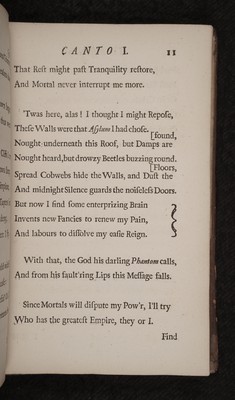 CANTO I. 11
That Reſt might paſt Tranquility reſtore,
And Mortal never interrupt me more.
'Twas here, alas! I thought I might Repoſe,
Theſe Walls were that Aſylum I had choſe.
[found,
Nought underneath this Roof, but Damps are
Nought heard, but drowzy Beetles buzzing round.
[Floors,
Spread Cobwebs hide the Walls, and Duſt the
And midnight Silence guards the noiſeleſs Doors.
But now I find ſome enterprizing Brain
Invents new Fancies to renew my Pain,
And labours to diſſolve my eaſie Reign.
With that, the God his darling Phantom calls,
And from his fault'ring Lips this Meſſage falls.
Since Mortals will diſpute my Pow'r, I'll try
Who has the greateſt Empire, they or I.
Find